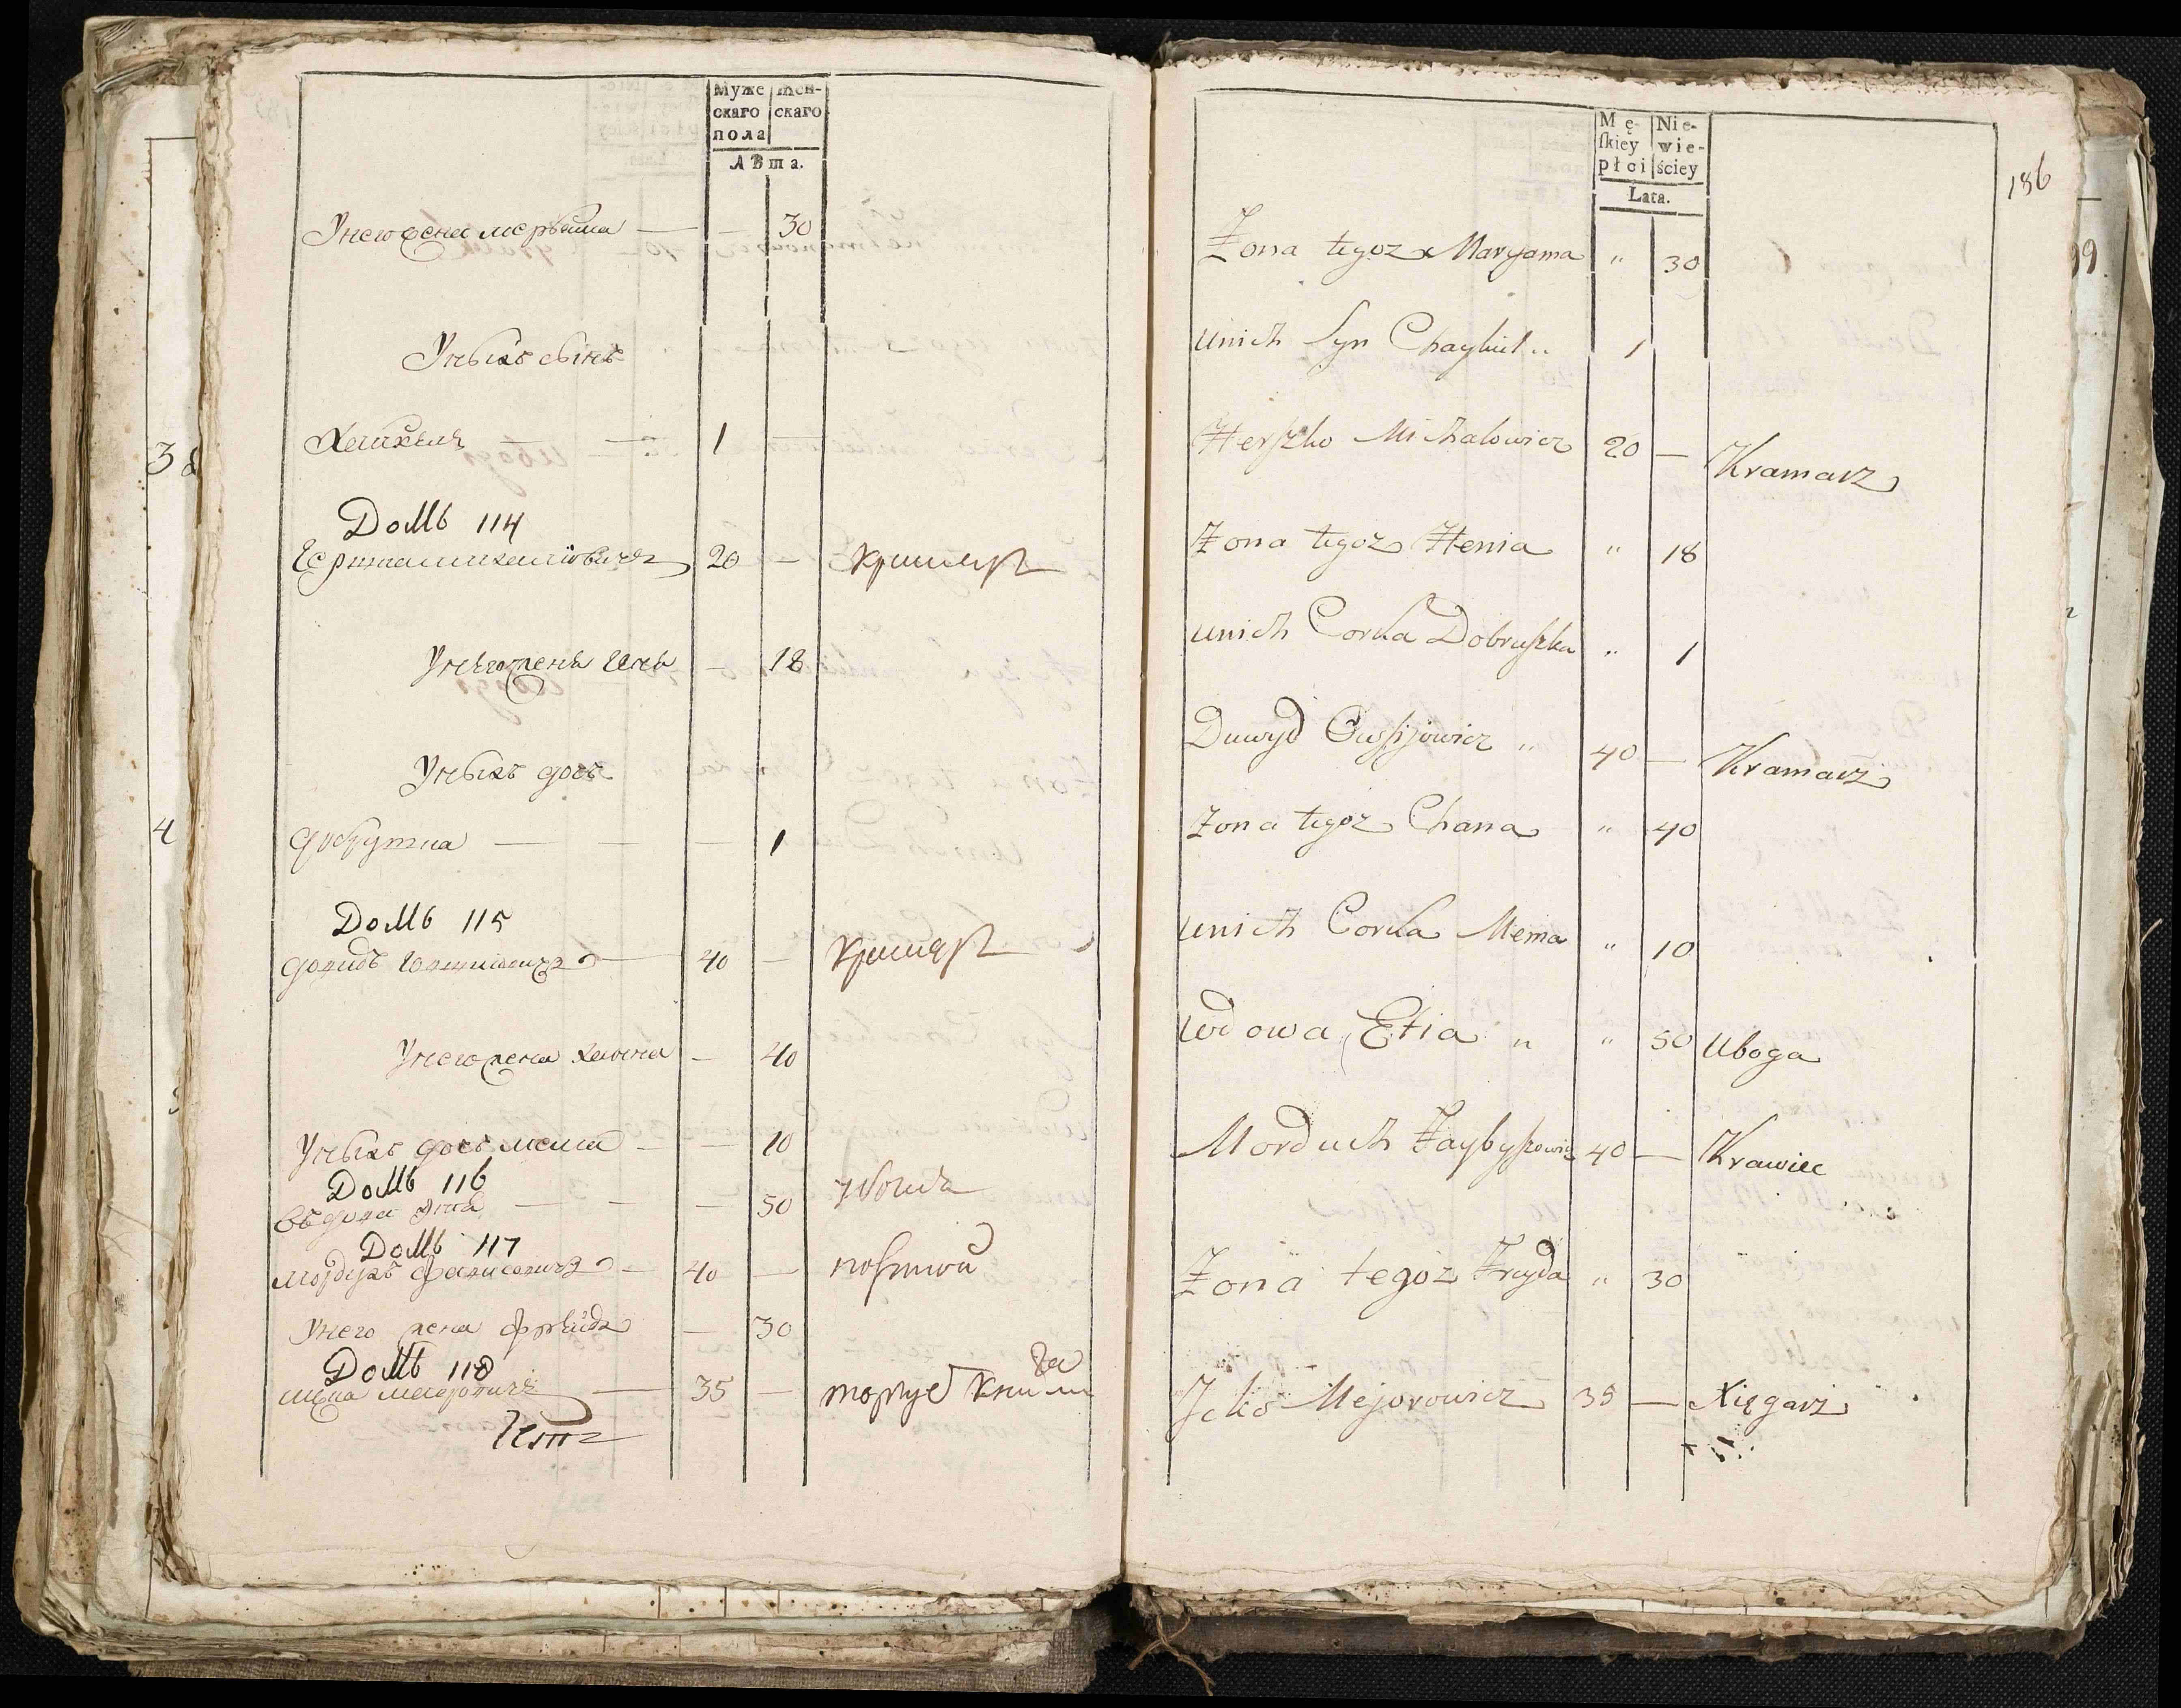 Муже скаго пола
жен- скаго
лѣта.
У него жена меръяма — — 30
У ныхъ сынъ
Хаикель — — 1 —
Домъ 114
Гершка михаиловичъ 20 — крамаръ
У него жена Геня — 18
У ныхъ дочь
добрушка — — — 1
Домъ 115
довидъ 40 — крамаръ
У него жена хаына — 40
У ныхъ дочь меня — — 10
Домъ 116
въдова этя — — — 50 убога
Домъ 117
мордухъ — 40 — портной
У него жена фрейда — 30
Домъ 118
ицка меюровичъ — 35 — торгуе книгами
186
Męſkiey płci
Niewieściey
Lata.
Żona tegoż Maryama " 30
unich Syn Chaykiel " 1
Herſzko Michalowicz 20 — Kramarz
Żona tegoż Henia " 18
unich Corka Dobruſzka " 1
Duwyd 40 — Kramarz
Żona tegoż Chana " 40
unich Corka Menia " 10
Wdowa Etia " " 50 Uboga
Morduch 40 — Krawiec
Żona tegoż Frayda " 30
Jcko Mejorowicz 35 — Xięgarz
99
3
4